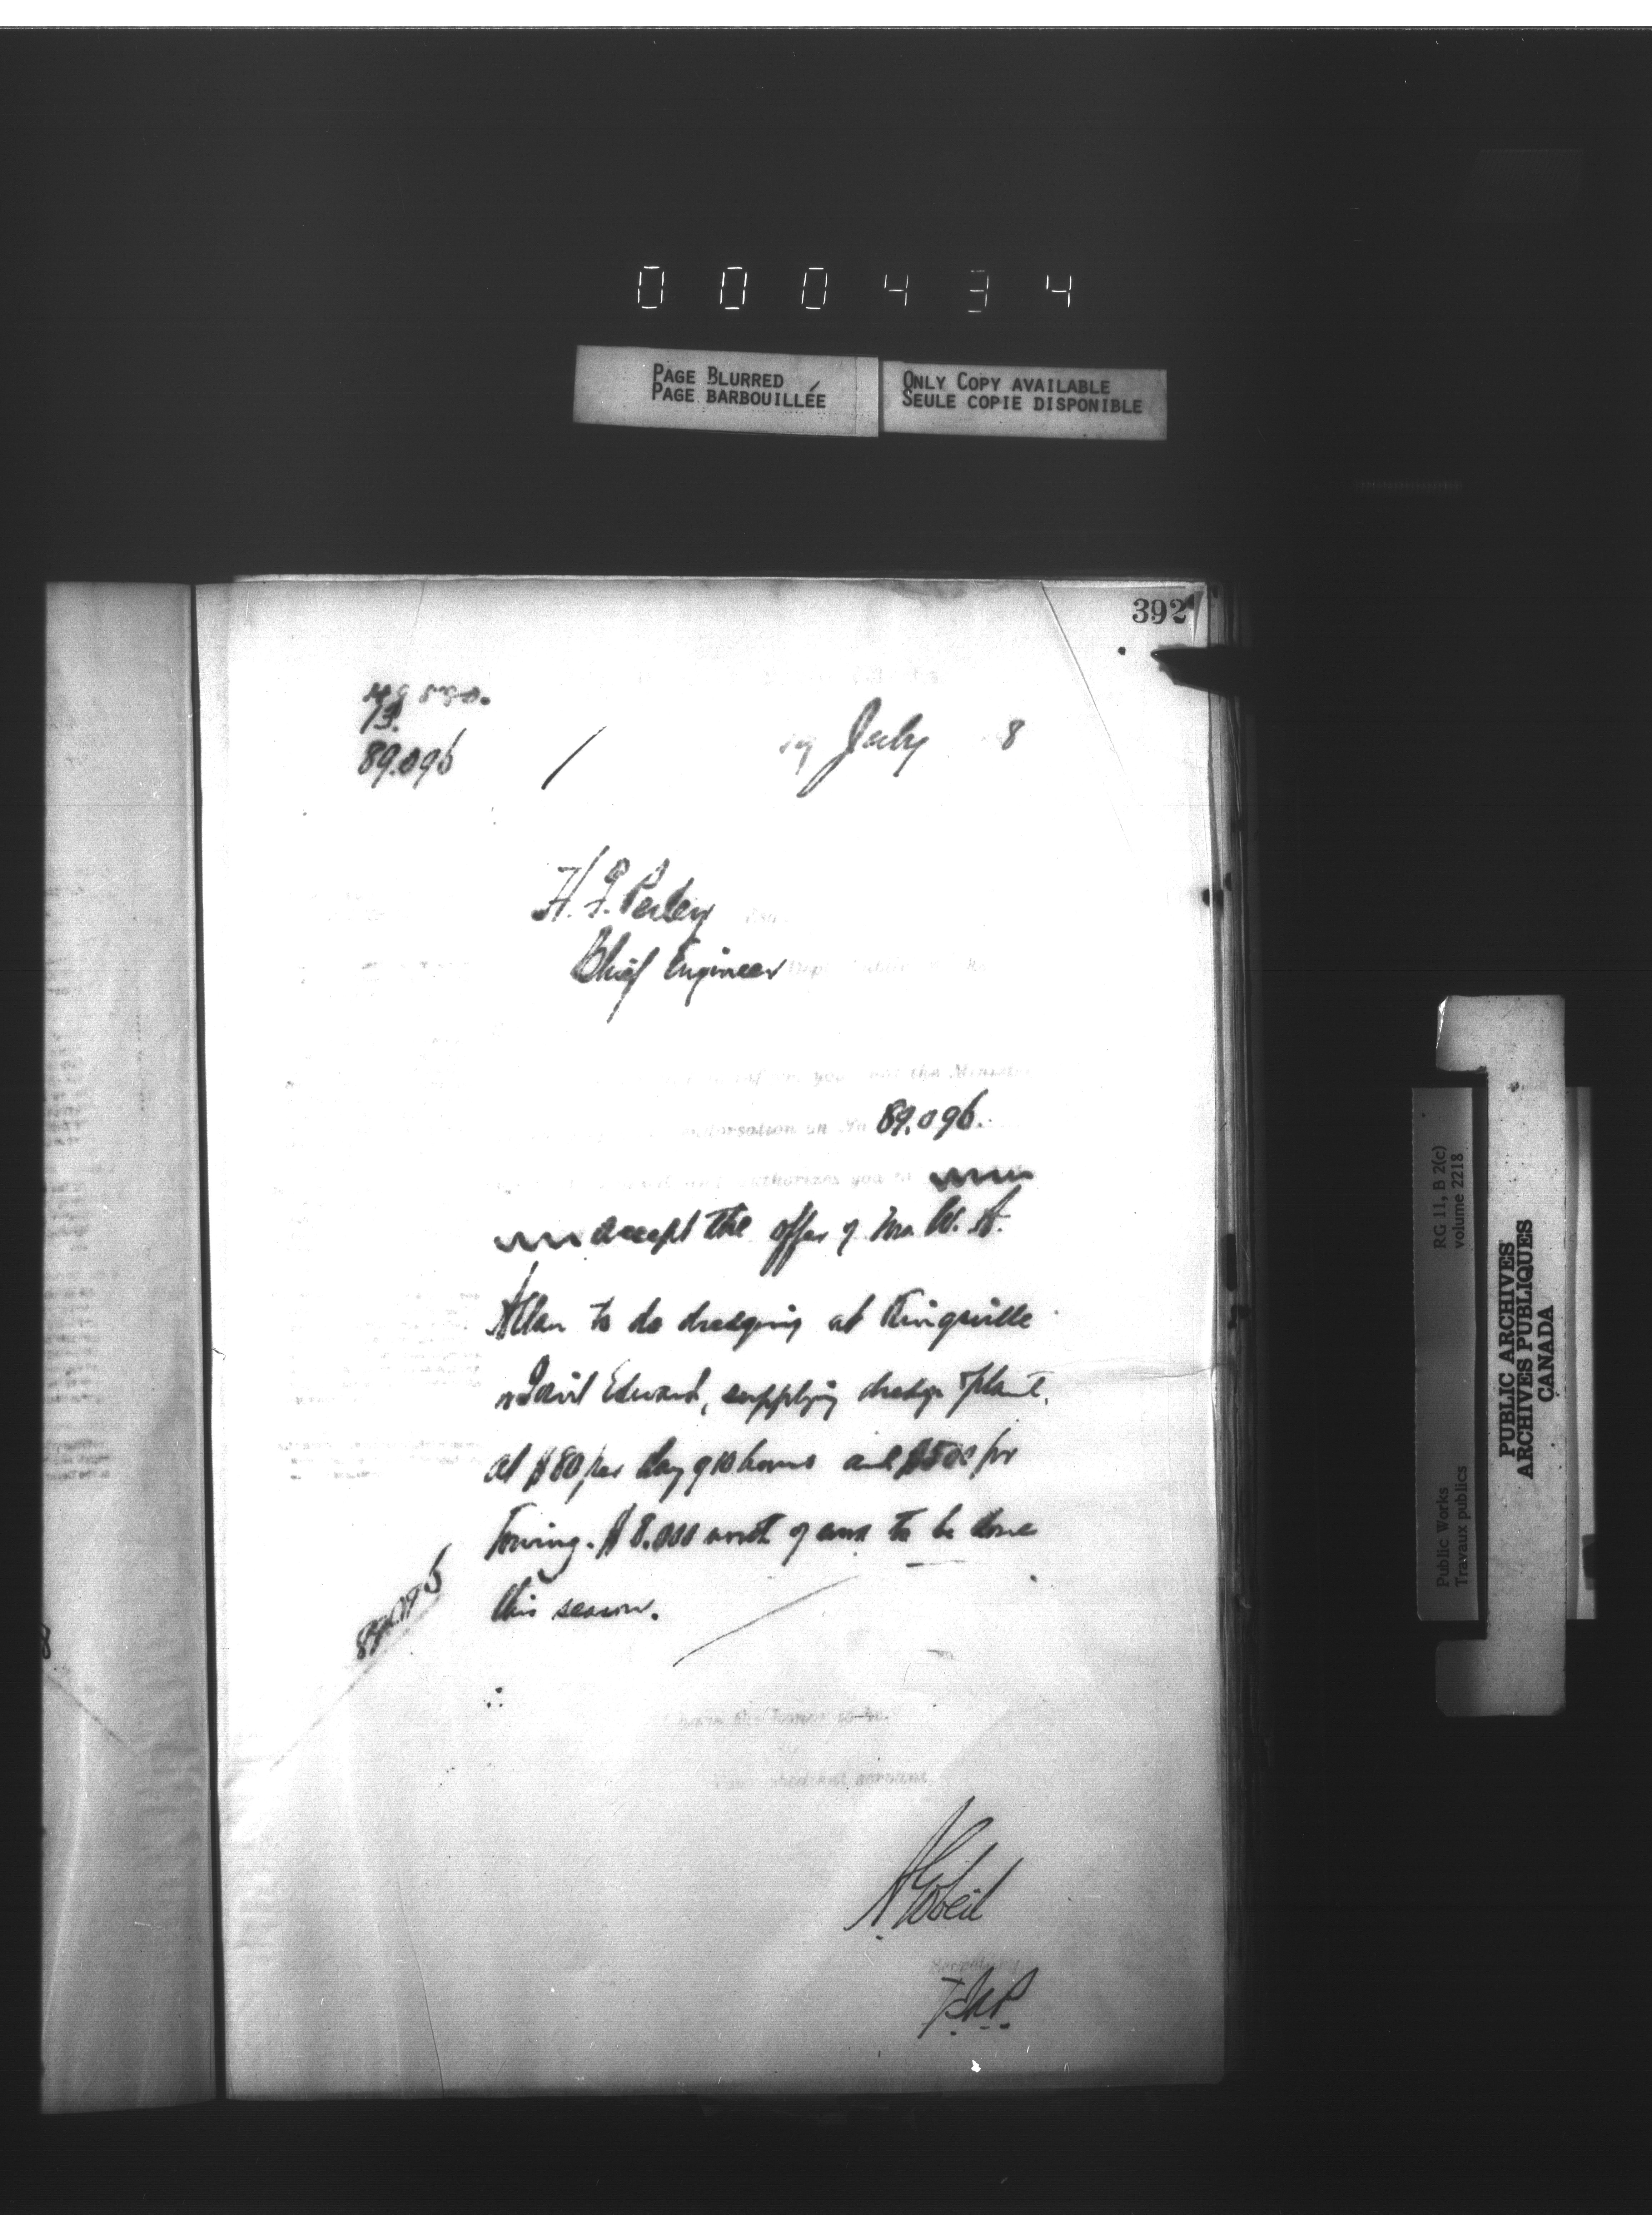 000434
PAGE BLURRED
PAGE BARBOUILLÉE
ONLY COPY AVAILABLE
SEULE COPIE DISPONIBLE
392
13.
89.096
19 July 8
H. F. Perley
Chief Engineer
you the Minister
on No 89.096.
authorizes you to
accept the offer of Mr. W. A.
Allan to do dredging at Kingsville
Edward, supplying dredge plant,
at $80 per day of 10 hours and $500 for
towing. $8.000 worth of work to be done
this season.
89096
have the honor to be
obedient servant
A Gobeil
Secretary
RG 11, B 2(c)
volume 2218
Public Works
Travaux publics
PUBLIC ARCHIVES
ARCHIVES PUBLIQUES
CANADA